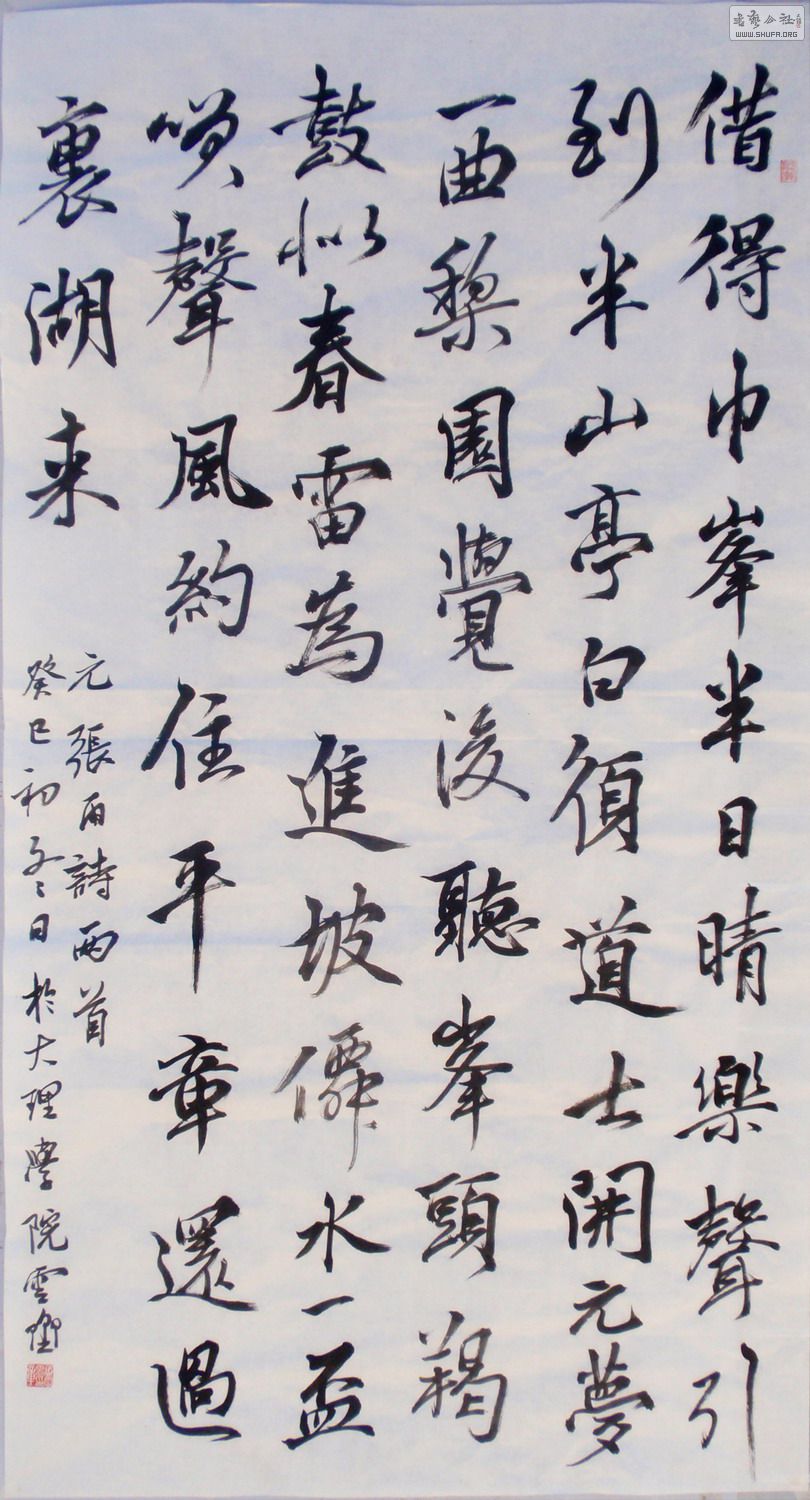 借得巾峯半日晴樂聲引
到半山亭白須道士開元夢
一曲棃園覺後聽峯頭羯
鼓似春雷為進坡僊水一盃
咲聲風約住平章還過
裏湖来
元張雨詩兩首
癸巳初冬之日於大理學院雲
书艺公社
WWW.SHUFA.ORG